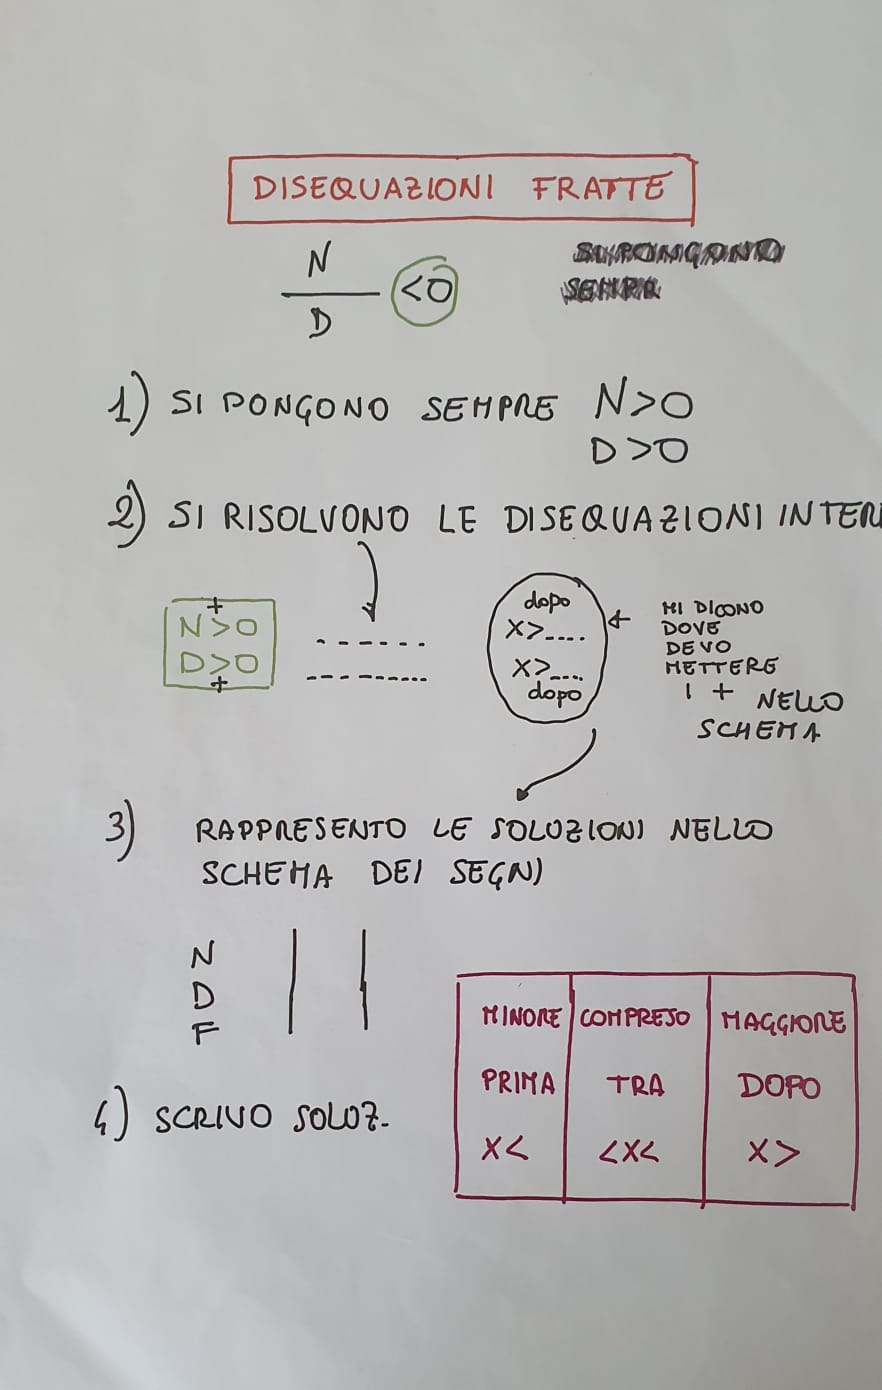 DISEQUAZIONI FRATTE
N
D
<0
1) SI PONGONO SEMPRE N>0
D>0
2) SI RISOLVONO LE DISEQUAZIONI INTER
+
N>0
D>0
+
- - - - - - -
- - - - - - - - -
dopo
X>....
X>....
dopo
MI DICONO
DOVE
DEVO
METTERE
I + NELLO
SCHEMA
3) RAPPRESENTO LE SOLUZIONI NELLO
SCHEMA DEI SEGNI
N
D
F
4) SCRIVO SOLUZ.
MINORE COMPRESO MAGGIORE
PRIMA TRA DOPO
X< <X< X>